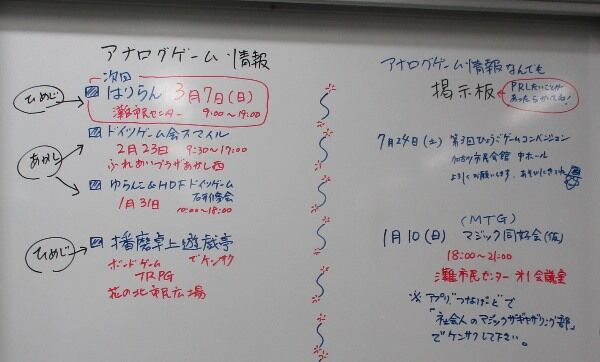 アナログゲーム情報
次回
ひめじ
はりらん 3月7日(日)
灘市民センター 9:00〜19:00
あかし
ドイツゲーム会スマイル
2月23日 9:30〜17:00
ふれあいプラザあかし西
ゆらんこ&HDFドイツゲーム
1月31日
10:00〜18:00
ひめじ
播磨卓上遊戯亭
ボードゲーム でケンサク
TRPG
花の北市民広場
アナログゲーム情報なんでも
掲示板
PRしたいことが
あったらかいてね!
7月24日(土) 第3回ひょうごゲームコンベンション
市民会館 中ホール
よろしくお願いします。あそびにきてね
(MTG)
1月10(日) マジック同好会(仮)
18:00〜21:00
灘市民センター 才1会議室
※アプリ「つなげーと」で
「社会人のマジックザギャザリング部」
でケンサクして下さい。